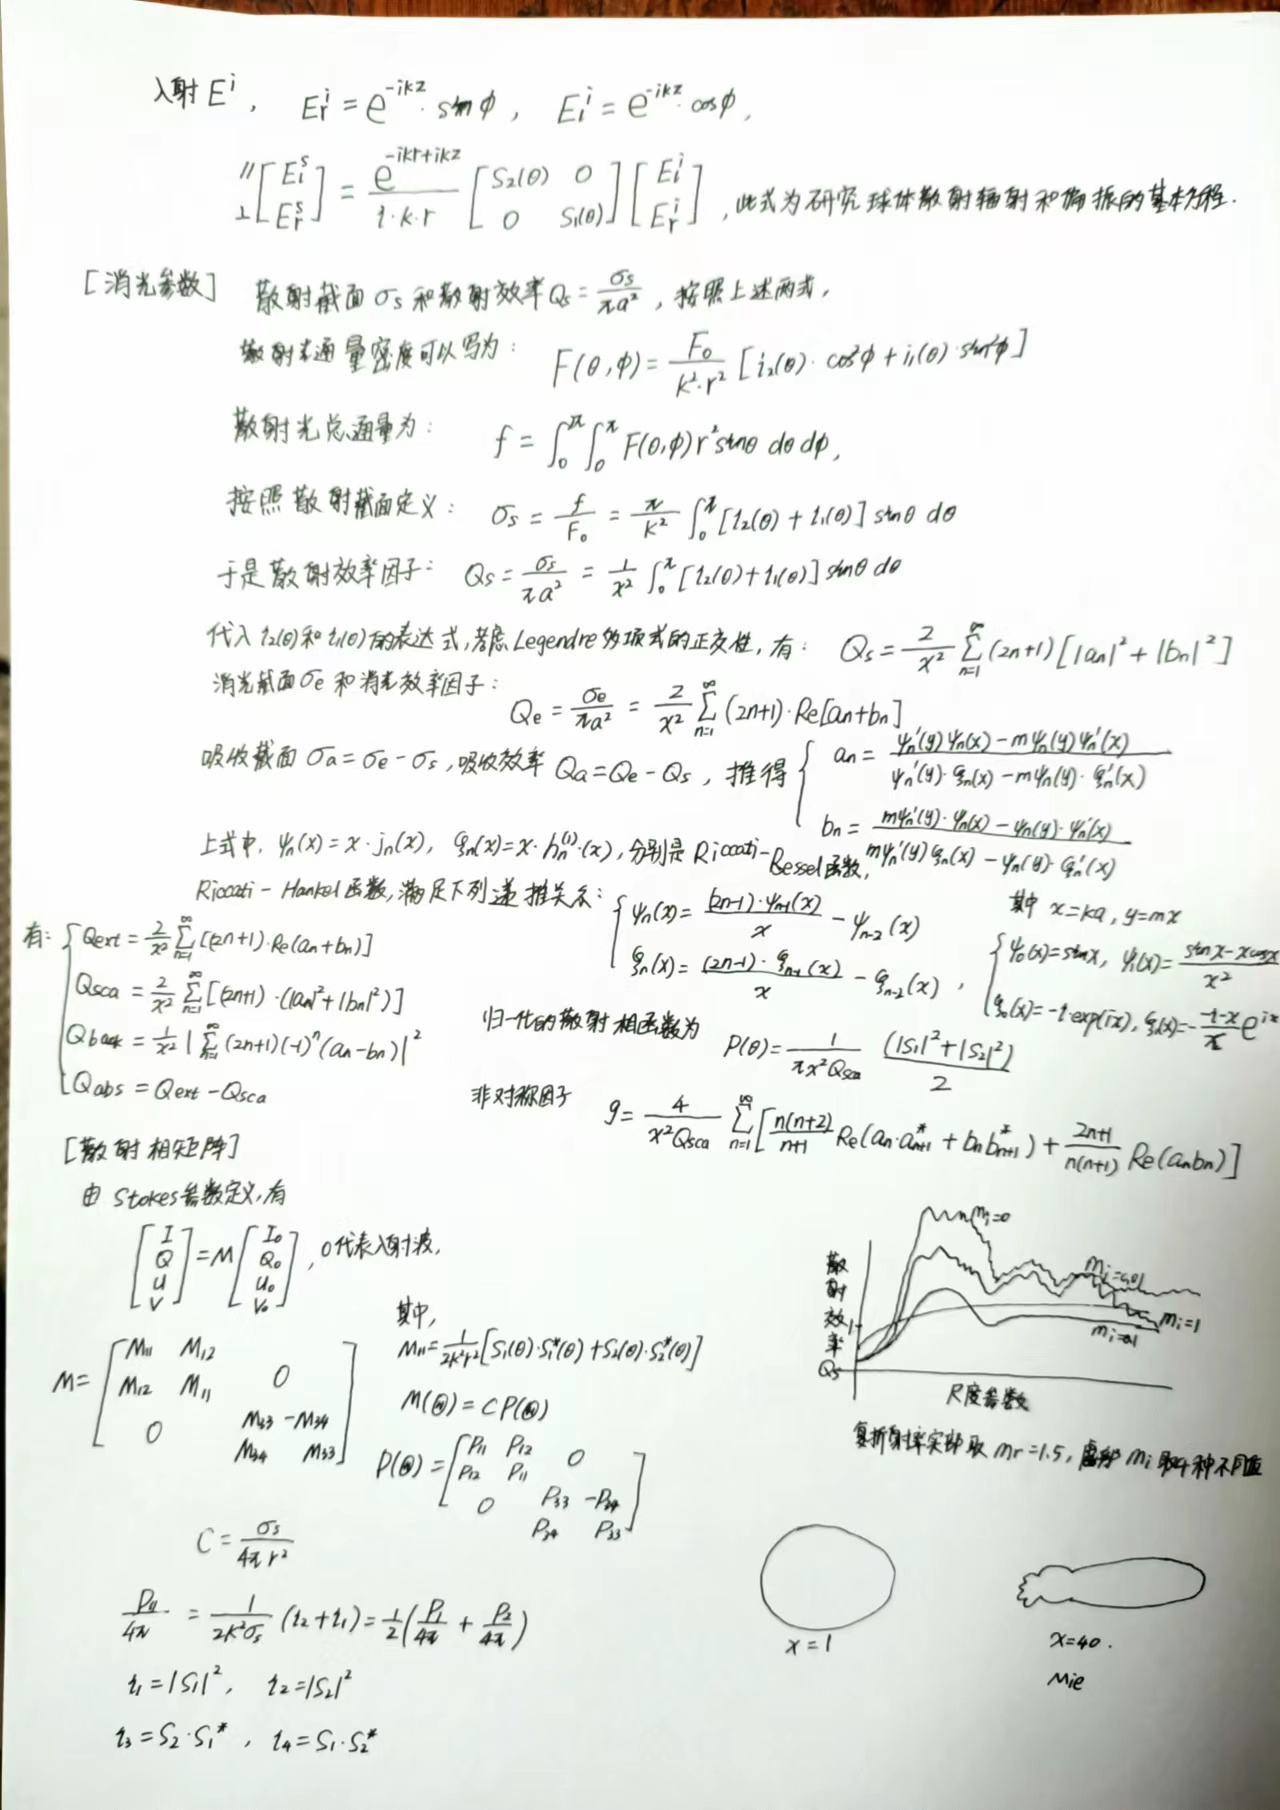 入射 E^i, E_r^i = e^{-ikz}·sinφ, E_l^i = e^{-ikz}·cosφ,
∥ ⊥ [E_l^s; E_r^s] = e^{-ikr+ikz}/(i·k·r) [S₂(θ) 0; 0 S₁(θ)] [E_l^i; E_r^i], 此式为研究球体散射辐射和偏振的基本方程.
[消光参数] 散射截面σs和散射效率Qs = σs/(πa²), 按照上述两式,
散射光通量密度可以写为: F(θ,φ) = F₀/(k²·r²) [i₂(θ)·cos²φ + i₁(θ)·sin²φ]
散射光总通量为: f = ∫₀^{2π} ∫₀^π F(θ,φ) r² sinθ dθ dφ,
按照散射截面定义: σs = f/F₀ = π/k² ∫₀^π [i₂(θ) + i₁(θ)] sinθ dθ
于是散射效率因子: Qs = σs/(πa²) = 1/x² ∫₀^π [i₂(θ) + i₁(θ)] sinθ dθ
代入i₂(θ)和i₁(θ)的表达式,考虑Legendre多项式的正交性, 有: Qs = 2/x² Σ_{n=1}^∞ (2n+1)[|an|² + |bn|²]
消光截面σe和消光效率因子: Qe = σe/(πa²) = 2/x² Σ_{n=1}^∞ (2n+1)·Re[an+bn]
吸收截面 σa = σe - σs, 吸收效率 Qa = Qe - Qs, 推得 { an = (ψn'(y)ψn(x) - mψn(y)ψn'(x))/(ψn'(y)·ξn(x) - mψn(y)·ξn'(x))
bn = (mψn'(y)·ψn(x) - ψn(y)·ψn'(x))/(mψn'(y)ξn(x) - ψn(y)·ξn'(x))
上式中, ψn(x) = x·jn(x), ξn(x) = x·hn^{(1)}·(x), 分别是Riccati-Bessel函数,
Riccati-Hankel函数,满足下列递推关系: { ψn(x) = (2n-1)·ψ_{n-1}(x)/x - ψ_{n-2}(x)
ξn(x) = (2n-1)·ξ_{n-1}(x)/x - ξ_{n-2}(x),
其中 x=ka, y=mx
{ ψ₀(x) = sinx, ψ₁(x) = (sinx - xcosx)/x²
ξ₀(x) = -i·exp(ix), ξ₁(x) = -(-i-x)/x e^{ix}
有: { Qext = 2/x² Σ_{n=1}^∞ [(2n+1)·Re(an+bn)]
Qsca = 2/x² Σ_{n=1}^∞ [(2n+1)·(|an|²+|bn|²)]
Qback = 1/x² |Σ_{n=1}^∞ (2n+1)(-1)^n (an-bn)|²
Qabs = Qext - Qsca
归一化的散射相函数为 P(θ) = 1/(πx²Qsca) (|S₁|²+|S₂|²)/2
非对称因子 g = 4/(x²Qsca) Σ_{n=1}^∞ [n(n+2)/(n+1) Re(an·a*_{n+1} + bn b*_{n+1}) + (2n+1)/(n(n+1)) Re(anbn)]
[散射相矩阵]
由Stokes参数定义,有
[I; Q; U; V] = M [I₀; Q₀; U₀; V₀], 0代表入射波,
M = [M11 M12 0; M12 M11; 0 M33 -M34; M34 M33]
其中,
M11 = 1/(2k²r²) [S₁(θ)·S₁*(θ) + S₂(θ)·S₂*(θ)]
M(Θ) = CP(Θ)
P(Θ) = [P11 P12 0; P12 P11; 0 P33 -P34; P34 P33]
C = σs/(4πr²)
P11/4π = 1/(2k²σs) (i₂+i₁) = 1/2 (P₁/4π + P₂/4π)
i₁ = |S₁|², i₂ = |S₂|²
i₃ = S₂·S₁*, i₄ = S₁·S₂*
散射效率Qs
1
mi=0
mi=0.01
mi=1
mi=0.1
尺度参数
复折射率实部取 mr=1.5, 虚部 mi 取4种不同值
x=1
x=40.
Mie